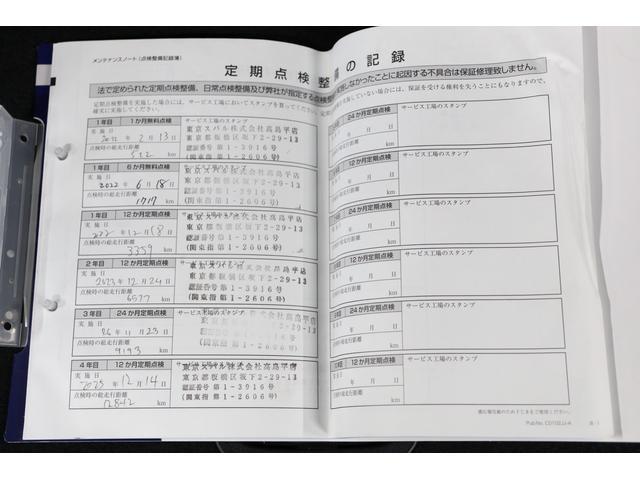 メンテナンスノート(点検整備記録簿)
定期点検整備の記録
法で定められた定期点検整備、日常点検整備及び弊社が指定する点検整
実施しなかったことに起因する不具合は保証修理致しません。
定期点検を実施した場合には、サービス工場においてスタンプを
確実に実施してください。
実施していない場合には、保証を受ける権利を失うことにもなりますので、
1年目 1か月無料点検 サービス工場のスタンプ
実施日 2022年 2月 13日
点検時の総走行距離
512 km
東京スバル株式会社高島平店
東京都板橋区坂下2-29-13
認証番号第1-3916号
(関東指第1-2606号)
1年目 6か月無料点検 サービス工場のスタンプ
実施日
2022年 6月 18日
点検時の総走行距離
1717 km
東京スバル株式会社高島平店
東京都板橋区坂下2-29-13
認証番号第1-3916号
(関東指第1-2606号)
1年目 12か月定期点検 サービス工場のスタンプ
実施日
年 12月 18日
点検時の総走行距離
3359 km
東京スバル株式会社高島平店
東京都板橋区坂下2-29-13
認証番号第1-3916号
(関東指第1-2606号)
2年目 12か月定期点検 サービス工場のスタンプ
実施日
2023年 12月 24日
点検時の総走行距離
6577 km
東京スバル株式会社高島平店
東京都板橋区坂下2-29-13
認証番号第1-3916号
(関東指第1-2606号)
3年目 24か月定期点検 サービス工場のスタンプ
実施日
年 11月 23日
点検時の総走行距離
9193 km
東京スバル株式会社高島平店
東京都板橋区坂下2-29-13
認証番号第1-3916号
(関東指第1-2606号)
4年目 12か月定期点検 サービス工場のスタンプ
実施日
2025年 12月 14日
点検時の総走行距離
12812 km
東京スバル株式会社高島平店
東京都板橋区坂下2-29-13
認証番号第1-3916号
(関東指第1-2606号)
24か月定期点検 サービス工場のスタンプ
年 月 日
km
12か月定期点検 サービス工場のスタンプ
年 月 日
km
24か月定期点検 サービス工場のスタンプ
年 月 日
km
12か月定期点検 サービス工場のスタンプ
年 月 日
km
24か月定期点検 サービス工場のスタンプ
年 月 日
km
12か月定期点検 サービス工場のスタンプ
年 月 日
km